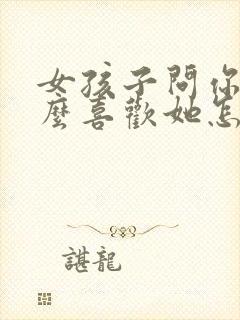 女孩子問你
麼喜歡她怎
諶龍